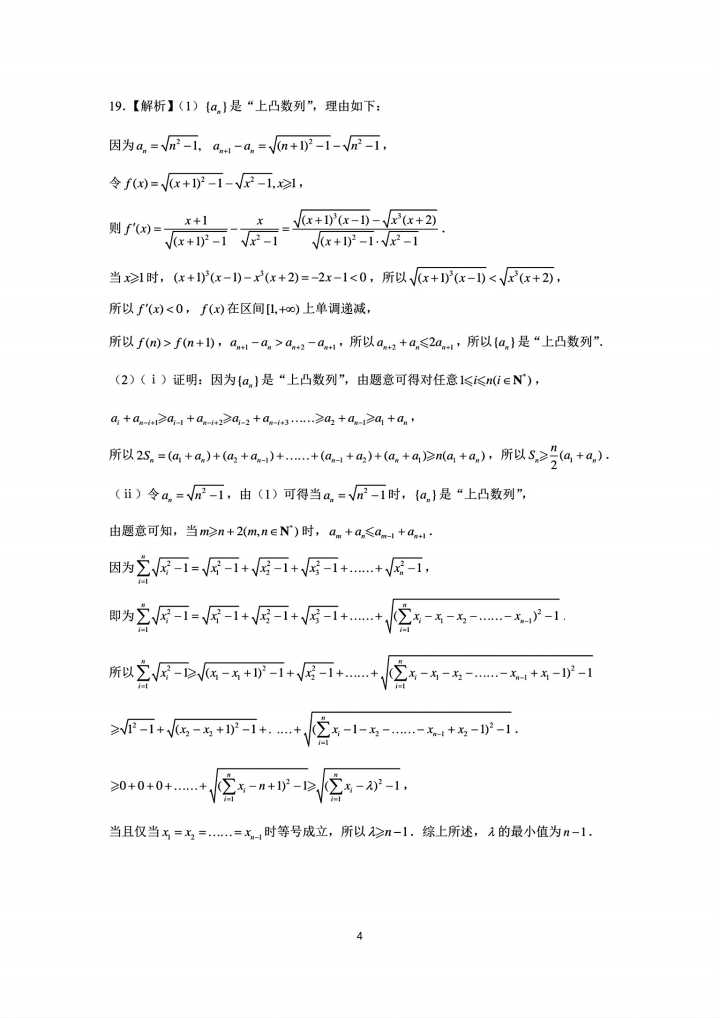 19.【解析】（1）{aₙ}是“上凸数列”，理由如下：
因为 aₙ = √(n² −1),  aₙ₊₁ − aₙ = √((n+1)² −1) − √(n² −1)，
令 f(x) = √((x+1)² −1) − √(x² −1), x⩾1，
则 f′(x) = (x+1)/√((x+1)² −1) − x/√(x² −1) = (√((x+1)³(x−1)) − √(x³(x+2)))/(√((x+1)² −1)·√(x² −1))．
当 x⩾1 时，(x+1)³(x−1) − x³(x+2) = −2x−1 < 0，所以 √((x+1)³(x−1)) < √(x³(x+2))，
所以 f′(x) < 0，f(x) 在区间[1,+∞) 上单调递减，
所以 f(n) > f(n+1)，aₙ₊₁ − aₙ > aₙ₊₂ − aₙ₊₁，所以 aₙ₊₂ + aₙ⩽2aₙ₊₁，所以{aₙ}是“上凸数列”．
（2）（ⅰ）证明：因为{aₙ}是“上凸数列”，由题意可得对任意1⩽i⩽n(i∈N*)，
aᵢ + aₙ₋ᵢ₊₁⩾aᵢ₋₁ + aₙ₋ᵢ₊₂⩾aᵢ₋₂ + aₙ₋ᵢ₊₃……⩾a₂ + aₙ₋₁⩾a₁ + aₙ，
所以 2Sₙ = (a₁ + aₙ) + (a₂ + aₙ₋₁) + …… + (aₙ₋₁ + a₂) + (aₙ + a₁)⩾n(a₁ + aₙ)，所以 Sₙ⩾n/2(a₁ + aₙ)．
（ⅱ）令 aₙ = √(n² −1)，由（1）可得当 aₙ = √(n² −1) 时，{aₙ}是“上凸数列”，
由题意可知，当 m⩾n+2(m,n∈N*) 时，aₘ + aₙ⩽aₘ₋₁ + aₙ₊₁．
因为 ∑ᵢ₌₁ⁿ √(xᵢ² −1) = √(x₁² −1) + √(x₂² −1) + √(x₃² −1) + …… + √(xₙ² −1)，
即为 ∑ᵢ₌₁ⁿ √(xᵢ² −1) = √(x₁² −1) + √(x₂² −1) + √(x₃² −1) + …… + √((∑ᵢ₌₁ⁿ xᵢ − x₁ − x₂ − …… − xₙ₋₁)² −1)．
所以 ∑ᵢ₌₁ⁿ √(xᵢ² −1)⩾√((x₁ − x₁ +1)² −1) + √(x₂² −1) + …… + √((∑ᵢ₌₁ⁿ xᵢ − x₁ − x₂ − …… − xₙ₋₁ + x₁ −1)² −1)
⩾√(1² −1) + √((x₂ − x₂ +1)² −1) + ……+ √((∑ᵢ₌₁ⁿ xᵢ −1− x₂ − …… − xₙ₋₁ + x₂ −1)² −1)．
⩾0+0+0+……+ √((∑ᵢ₌₁ⁿ xᵢ − n +1)² −1)⩾√((∑ᵢ₌₁ⁿ xᵢ − λ)² −1)，
当且仅当 x₁ = x₂ = …… = xₙ₋₁ 时等号成立，所以 λ⩾n−1．综上所述，λ 的最小值为 n−1．
4